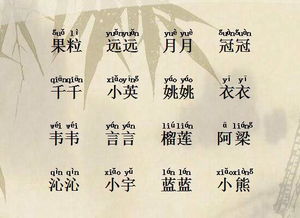 guǒ lì yuǎnyuǎn yuè yuè guānguān
果粒 远远 月月 冠冠
qiānqiān xiǎoyīng yáo yáo yī yī
千千 小英 姚姚 衣衣
wéi wéi yán yán liú lián ā liáng
韦韦 言言 榴莲 阿梁
qìn qìn xiǎo yǔ lán lán xiǎoxióng
沁沁 小宇 蓝蓝 小熊